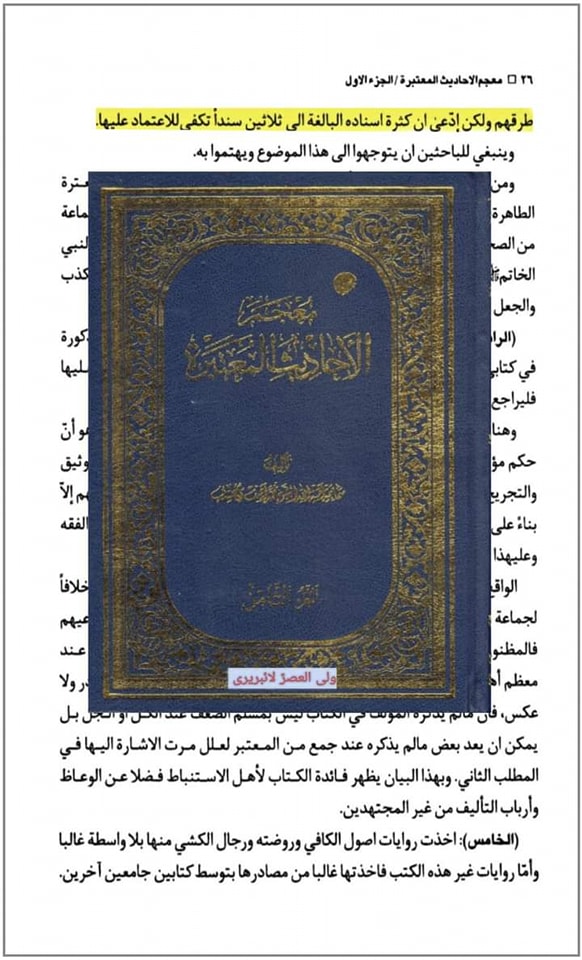 ٢٦ □ معجم الاحاديث المعتبرة / الجزء الاول
طرقهم ولكن إدّعىٰ ان كثرة اسناده البالغة الى ثلاثين سنداً تكفى للاعتماد عليها.
وينبغي للباحثين ان يتوجهوا الى هذا الموضوع ويهتموا به.
ومن
الطاهرة
جماعة
من الصح
النبي
الخاتم
كذب
والجعل
في كتابي
فليراجع
وهنا
هو أنّ
والتجريح
إلاّ
بناءً على
الفقه
وعليهذا
الواقع
خلافاً
لجماعة
فالمظنون
عند
معظم أه
ولا
معجم
الأحاديث المعتبرة
تأليف
الجزء الثامن
ولی العصرؑ لائبریری
عكس، فان مالم يذكره المؤلف في الكتاب ليس بمسلم الضعف عند الكل او الجل بل
يمكن ان يعد بعض مالم يذكره عند جمع من المعتبر لعلل مرت الاشارة اليها في
المطلب الثاني. وبهذا البيان يظهر فائدة الكتاب لأهل الاستنباط فضلا عن الوعاظ
وأرباب التأليف من غير المجتهدين.
(الخامس): اخذت روايات اصول الكافي وروضته ورجال الكشي منها بلا واسطة غالبا
وأمّا روايات غير هذه الكتب فاخذتها غالبا من مصادرها بتوسط كتابين جامعين آخرين.